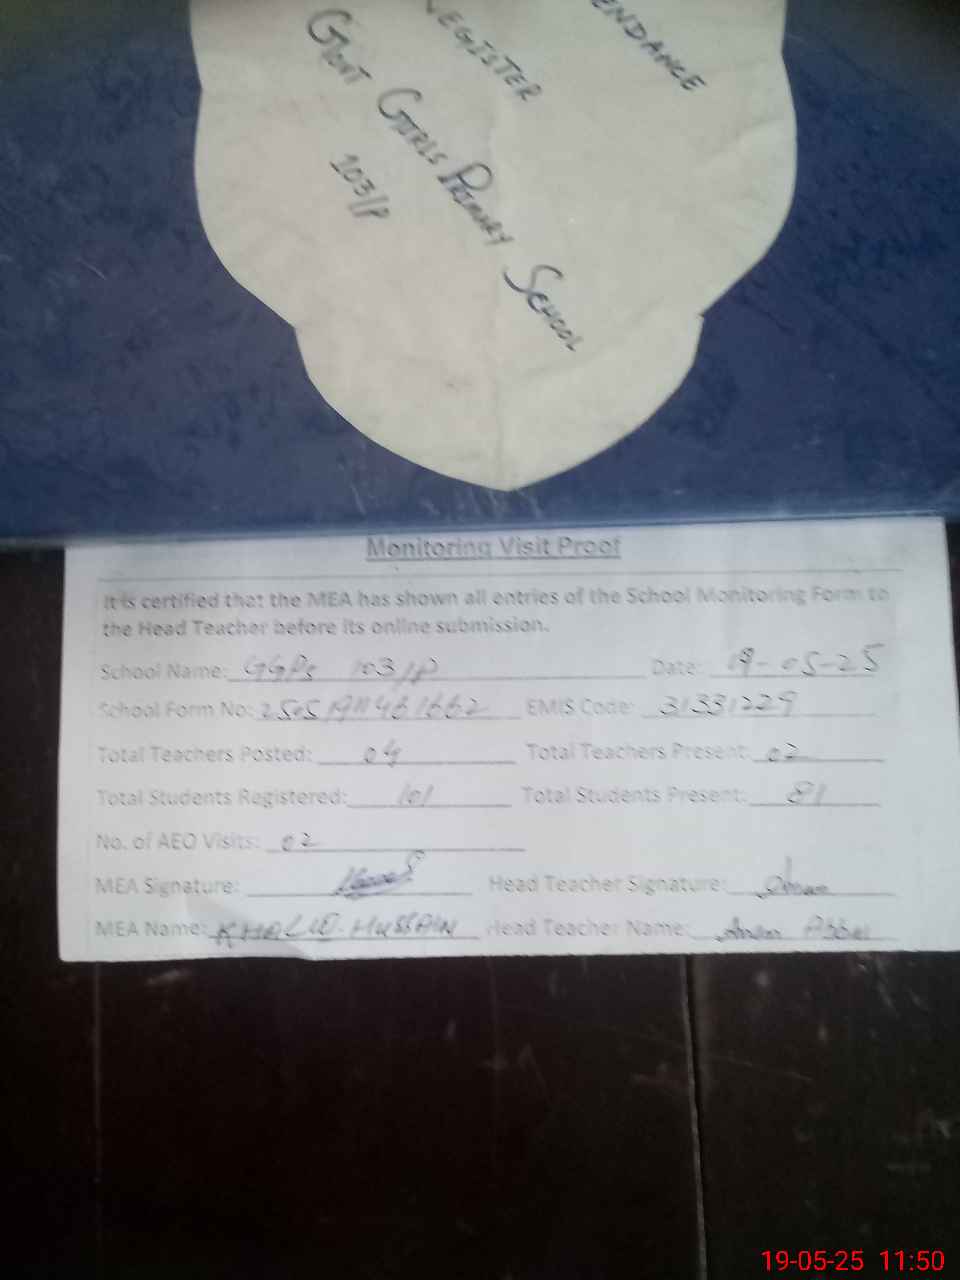 ENDANCE
REGISTER
Govt Girls Primary School
103/P
Monitoring Visit Proof
It is certified that the MEA has shown all entries of the School Monitoring Form to
the Head Teacher before its online submission.
School Name: GGPS 103/P Date: 19-05-25
School Form No: EMIS Code: 31331229
Total Teachers Posted: 04 Total Teachers Present: 02
Total Students Registered: 101 Total Students Present: 81
No. of AEO Visits: 02
MEA Signature: Head Teacher Signature:
MEA Name: KHALID HUSSAIN Head Teacher Name:
19-05-25 11:50